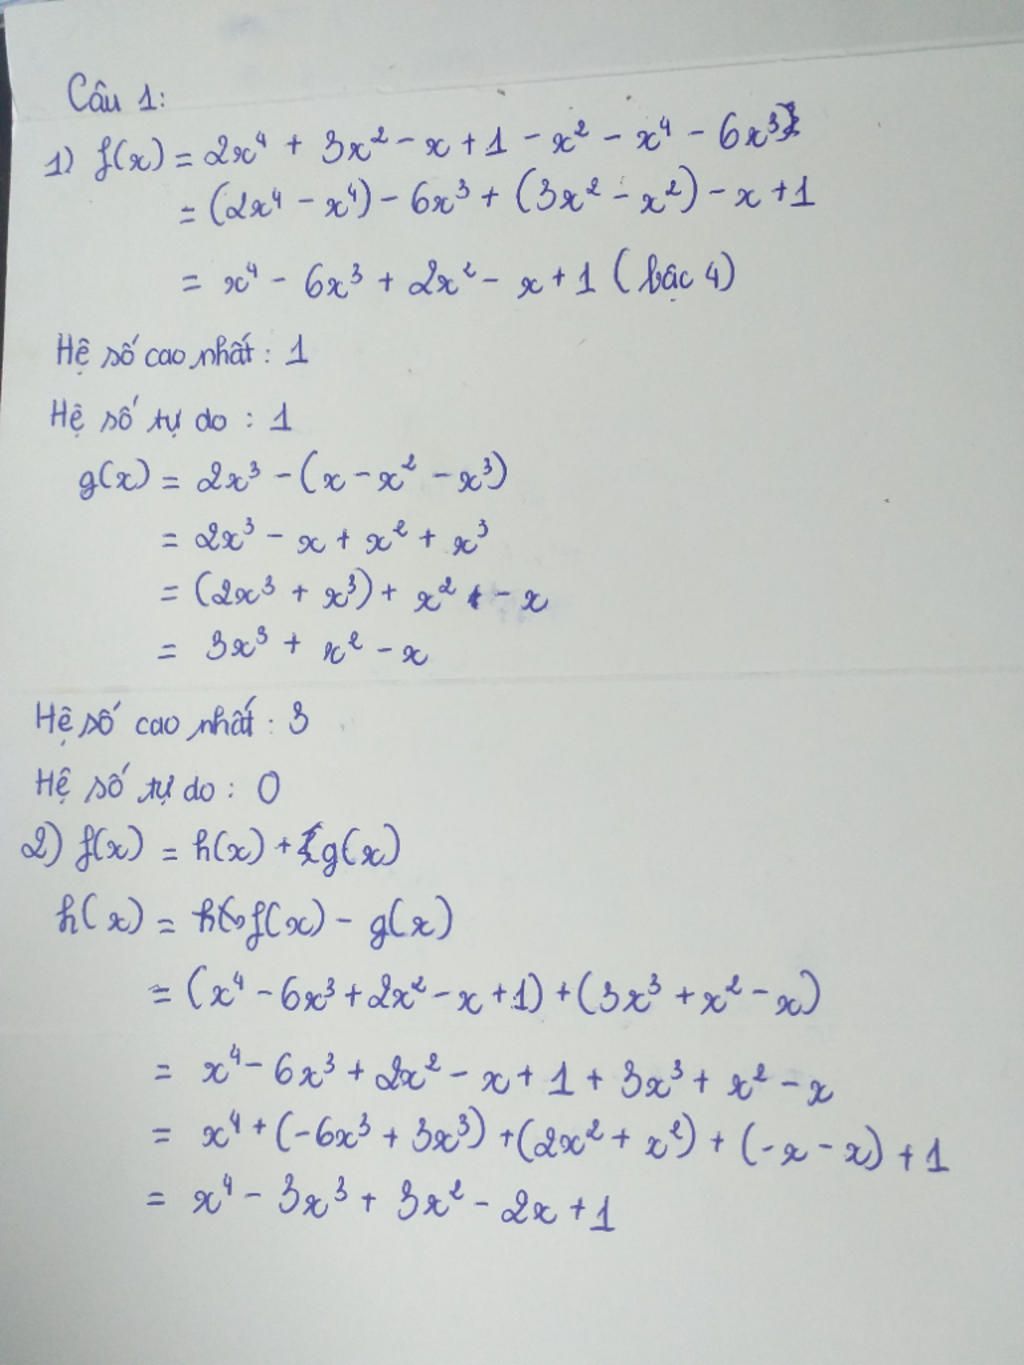 Câu 1:
1) f(x) = 2x⁴ + 3x² - x + 1 - x² - x⁴ - 6x³
= (2x⁴ - x⁴) - 6x³ + (3x² - x²) - x + 1
= x⁴ - 6x³ + 2x² - x + 1 (bậc 4)
Hệ số cao nhất: 1
Hệ số tự do: 1
g(x) = 2x³ - (x - x² - x³)
= 2x³ - x + x² + x³
= (2x³ + x³) + x² - x
= 3x³ + x² - x
Hệ số cao nhất: 3
Hệ số tự do: 0
2) f(x) = h(x) + g(x)
h(x) = f(x) - g(x)
= (x⁴ - 6x³ + 2x² - x + 1) + (3x³ + x² - x)
= x⁴ - 6x³ + 2x² - x + 1 + 3x³ + x² - x
= x⁴ + (-6x³ + 3x³) + (2x² + x²) + (-x - x) + 1
= x⁴ - 3x³ + 3x² - 2x + 1